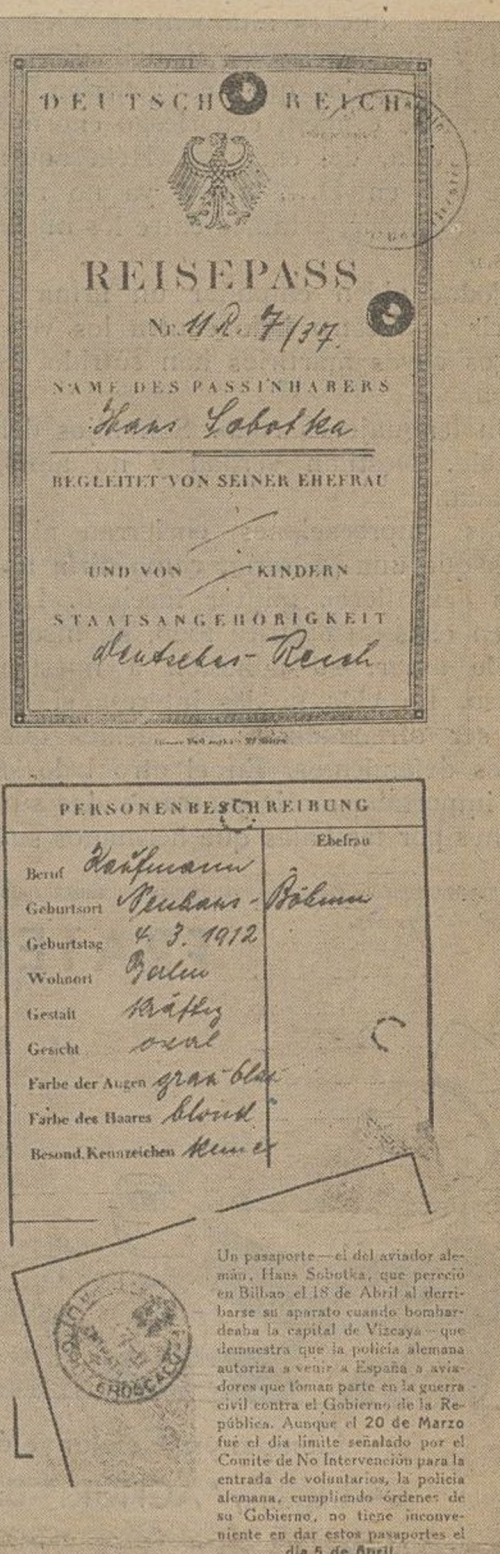 DEUTSCH REICH
REISEPASS
Nr. UR. 7/37.
NAME DES PASSINHABERS
Hans Sobotka
BEGLEITET VON SEINER EHEFRAU
UND VON KINDERN
STAATSANGEHÖRIGKEIT
Deutsches-Reich
PERSONENBESCHREIBUNG
Ehefrau
Beruf Kaufmann
Geburtsort Neuhaus-Böhmen
Geburtstag 4. 3. 1912
Wohnort Berlin
Gestalt kräftig
Gesicht oval
Farbe der Augen grau-blau
Farbe des Haares blond
Besond. Kennzeichen keine
Un pasaporte—el del aviador ale-
mán, Hans Sobotka, que pereció
en Bilbao el 18 de Abril al derri-
barse su aparato cuando bombar-
deaba la capital de Vizcaya—que
demuestra que la policía alemana
autoriza a venir a España a avia-
dores que toman parte en la guerra
civil contra el Gobierno de la Re-
pública. Aunque el 20 de Marzo
fué el día límite señalado por el
Comité de No Intervención para la
entrada de voluntarios, la policía
alemana, cumpliendo órdenes de
su Gobierno, no tiene inconve-
niente en dar estos pasaportes el
día 5 de Abril